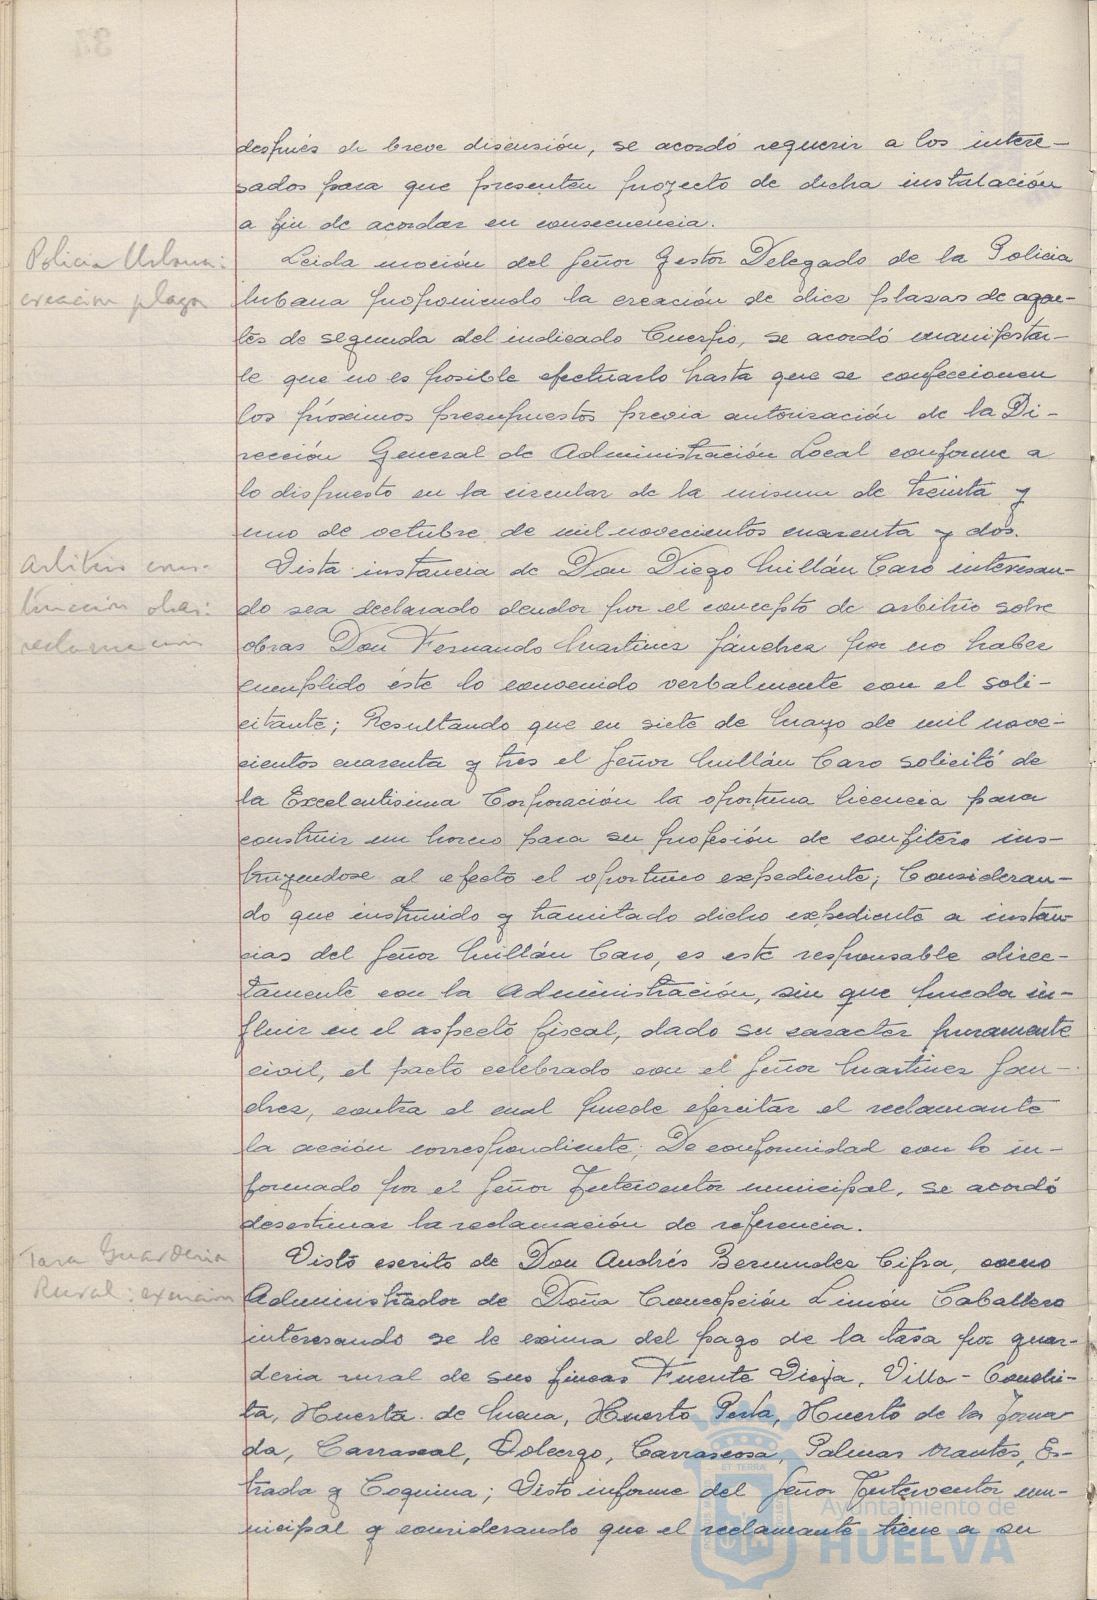 después de breve discusión, se acordó requerir a los intere-
sados para que presenten proyecto de dicha instalación
a fin de acordar en consecuencia.
Policia Urbana:
creación plazas
Leida moción del Señor Gestor Delegado de la Policia
Urbana proponiendo la creación de diez plazas de agen-
tes de segunda del indicado Cuerpo, se acordó manifestar-
le que no es posible efectuarlo hasta que se confeccionen
los próximos presupuestos previa autorización de la Di-
rección General de Administración Local conforme a
lo dispuesto en la circular de la misma de treinta y
uno de octubre de mil novecientos cuarenta y dos.
Arbitrio cons-
trucción obras:
reclamación
Vista instancia de Don Diego Guillán Caro interesan-
do sea declarado deudor por el concepto de arbitrio sobre
obras Don Fernando Martinez Sánchez por no haber
cumplido éste lo convenido verbalmente con el soli-
citante; Resultando que en siete de Mayo de mil nove-
cientos cuarenta y tres el Señor Guillán Caro solicitó de
la Excelentisima Corporación la oportuna licencia para
construir un horno para su profesión de confitero ins-
truyendose al efecto el oportuno expediente; Consideran-
do que instruido y tramitado dicho expediente a instan-
cias del Señor Guillán Caro, es este responsable direc-
tamente con la Administración, sin que pueda in-
fluir en el aspecto fiscal, dado su caracter puramente
civil, el pacto celebrado con el Señor Martinez San-
chez, contra el cual puede ejercitar el reclamante
la acción correspondiente; De conformidad con lo in-
formado por el Señor Interventor municipal, se acordó
desestimar la reclamación de referencia.
Tasa Guarderia
Rural: exención
Visto escrito de Don Andrés Bermudez Cifra, como
Administrador de Doña Concepción Limón Caballero
interesando se le exima del pago de la tasa por guar-
deria rural de sus fincas Fuente Vieja, Villa-Conchi-
ta, Huerta de Mena, Huerto Perla, Huerto de la Joma-
da, Carrascal, Carrascosa, Palmas Orantes, Es-
trada y Coquina; Visto informe del Señor Interventor mu-
nicipal y considerando que el reclamante tiene a su
Ayuntamiento de
HUELVA